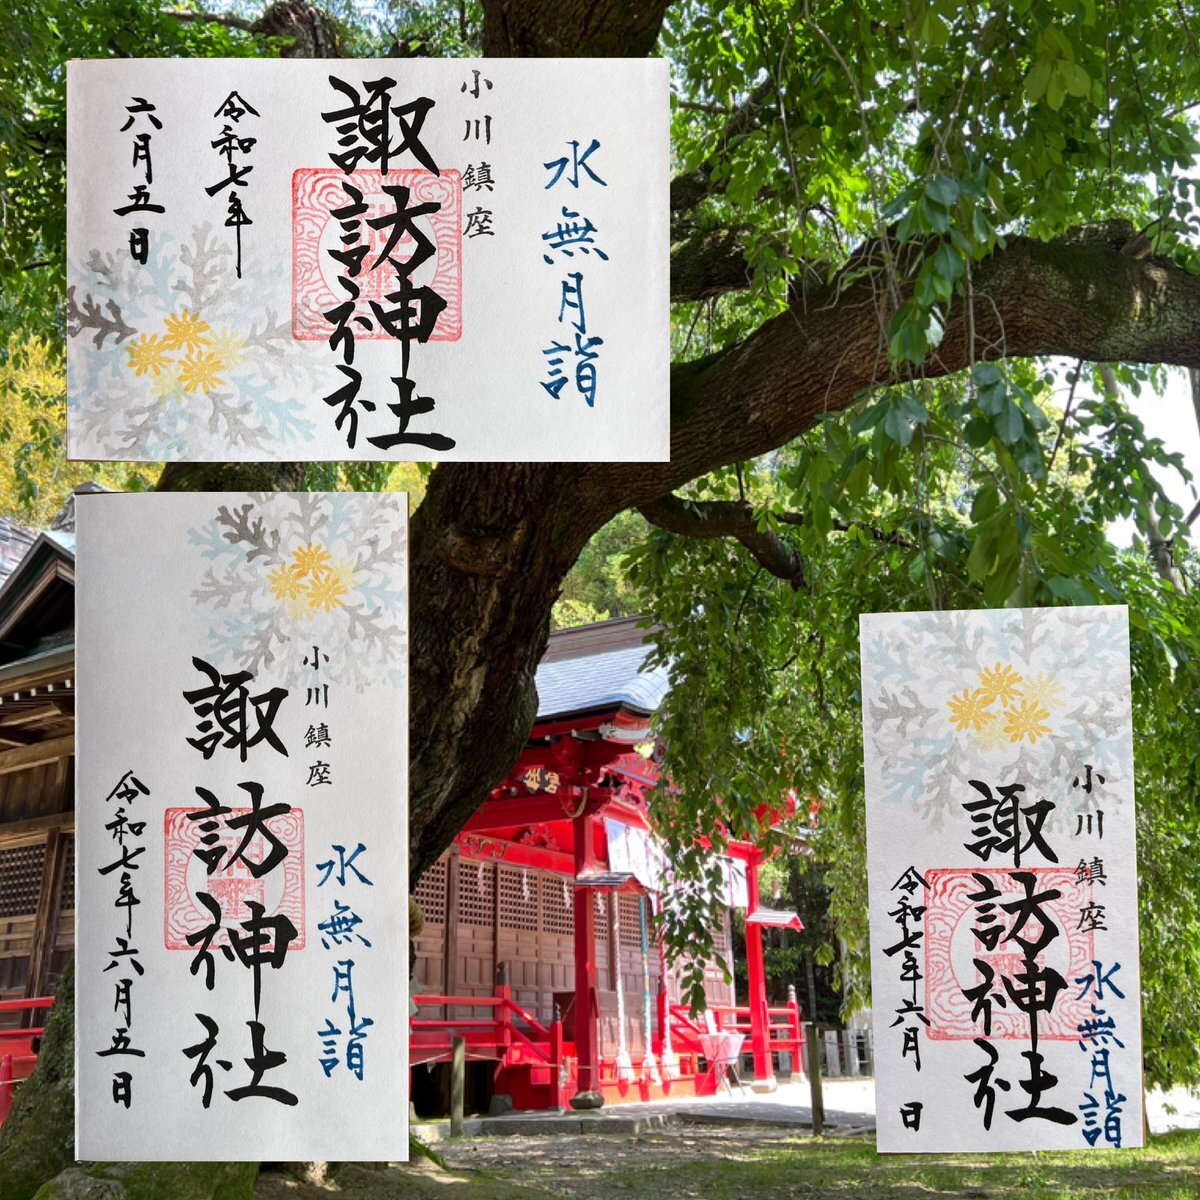 水無月詣
小川鎮座
諏訪神社
令和七年
六月五日
水無月詣
小川鎮座
諏訪神社
令和七年六月五日
水無月詣
小川鎮座
諏訪神社
令和七年六月 日